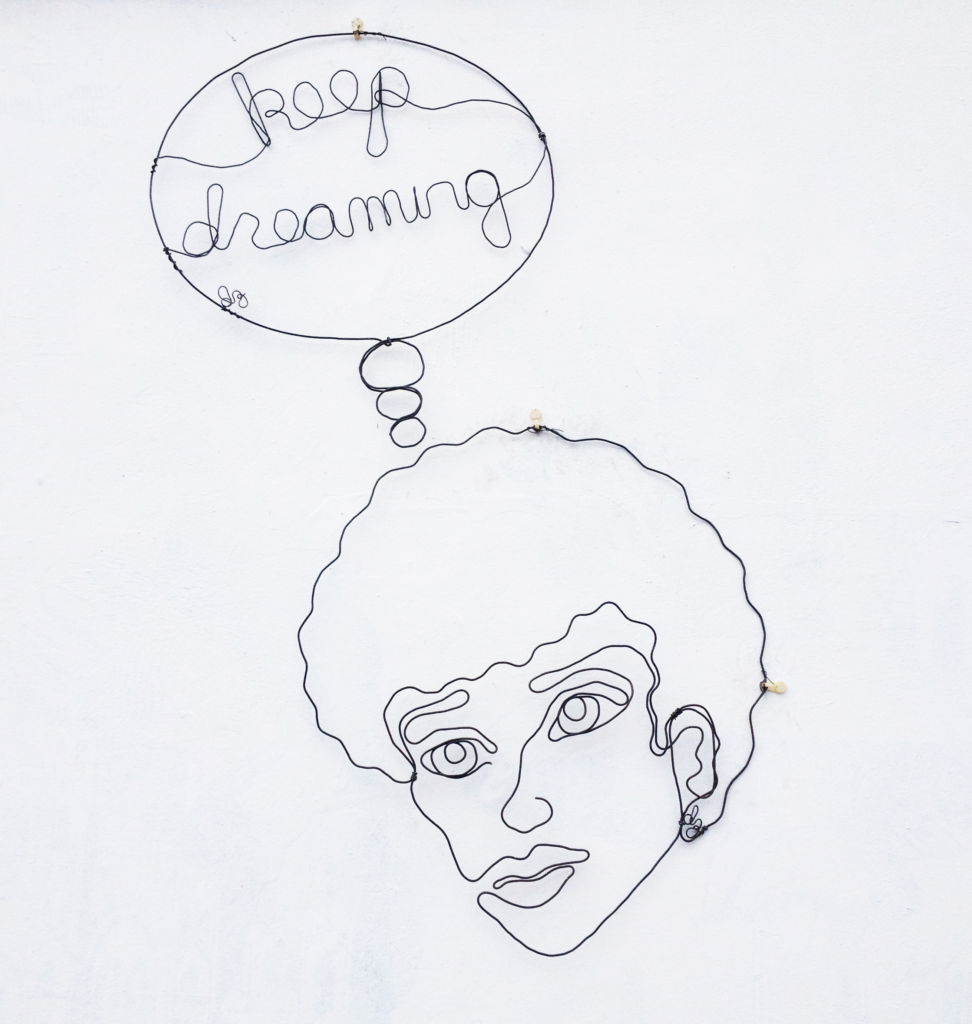 keep
dreaming